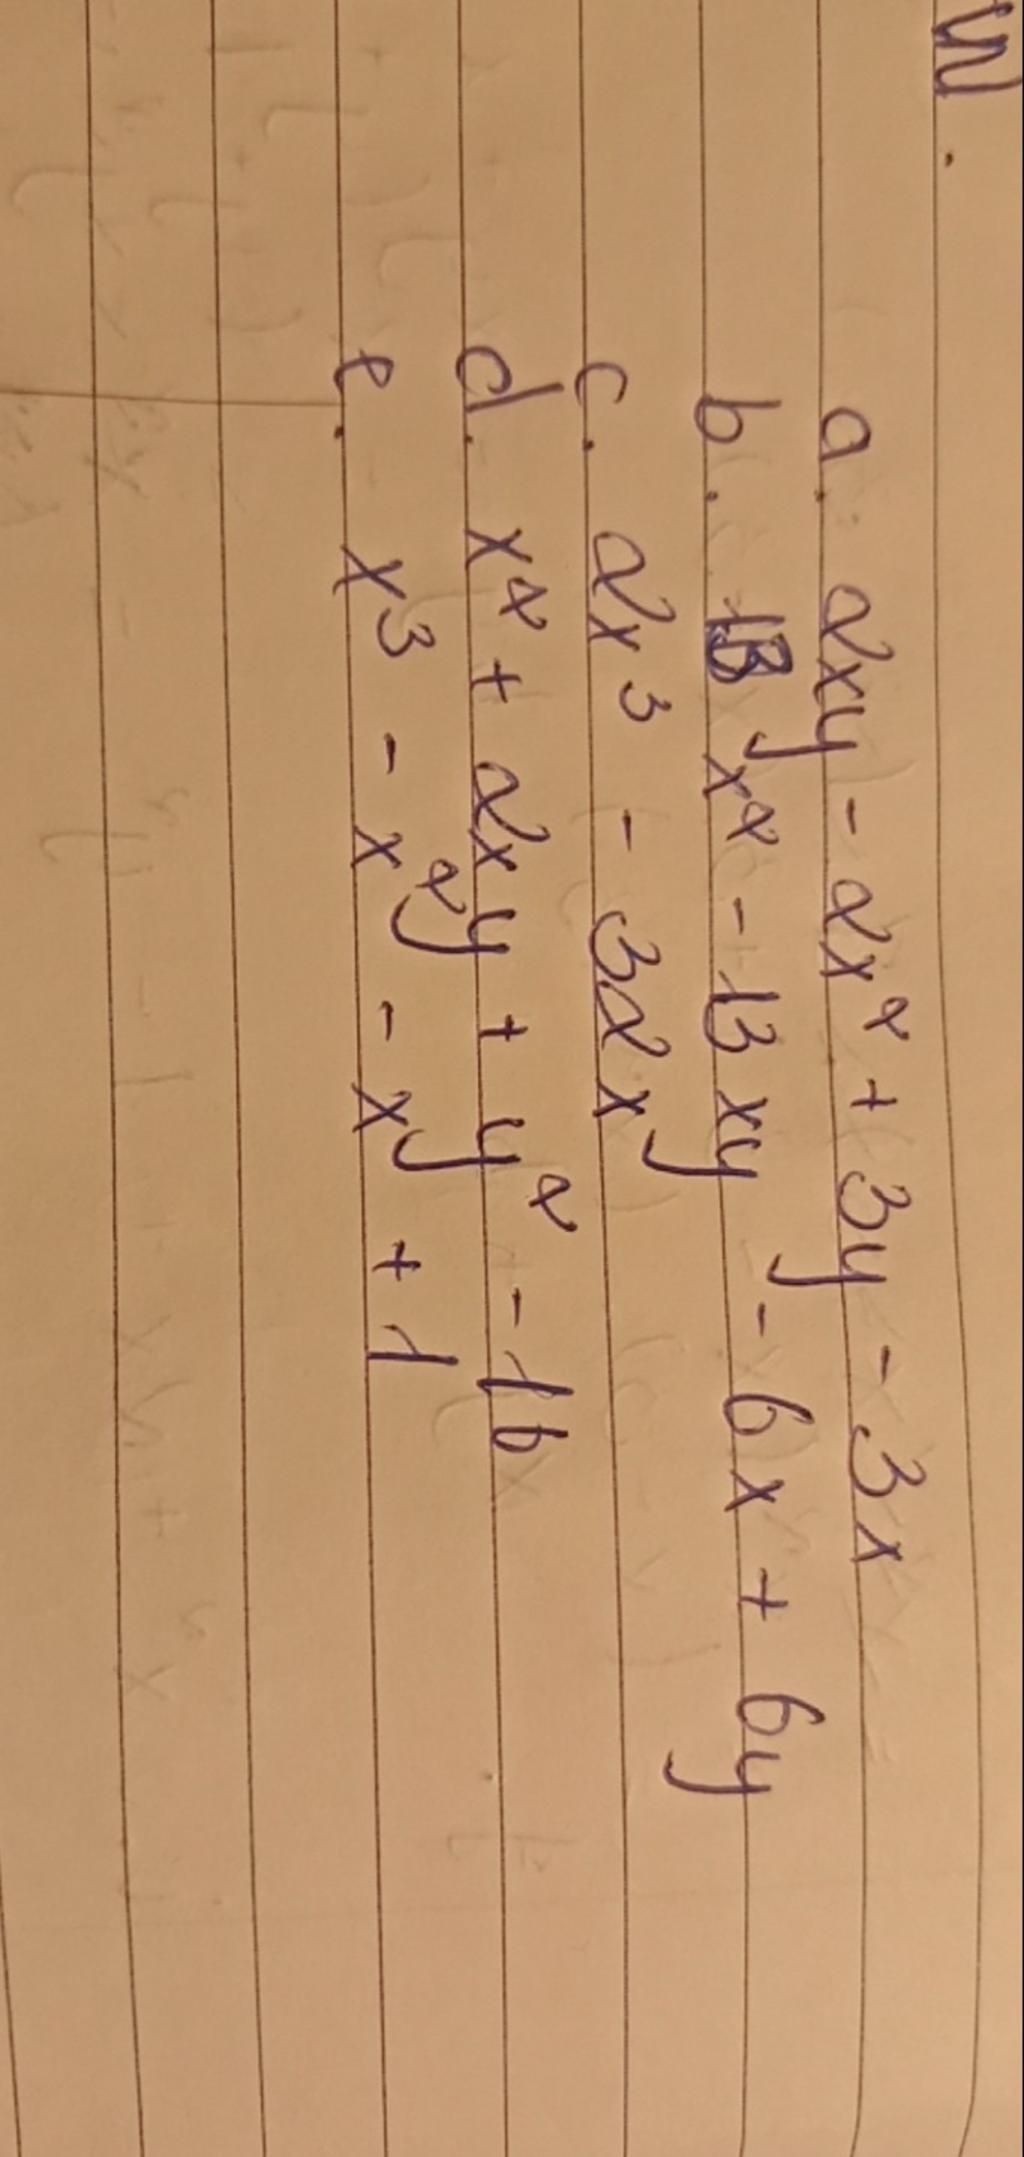 IN.
a. 2xy - 2x² + 3y - 3x
b. 13x² - 13xy - 6x + 6y
c. 2x³ - 32x
d. x² + 2xy + y² - 16
e. x³ - x²y - xy + 1